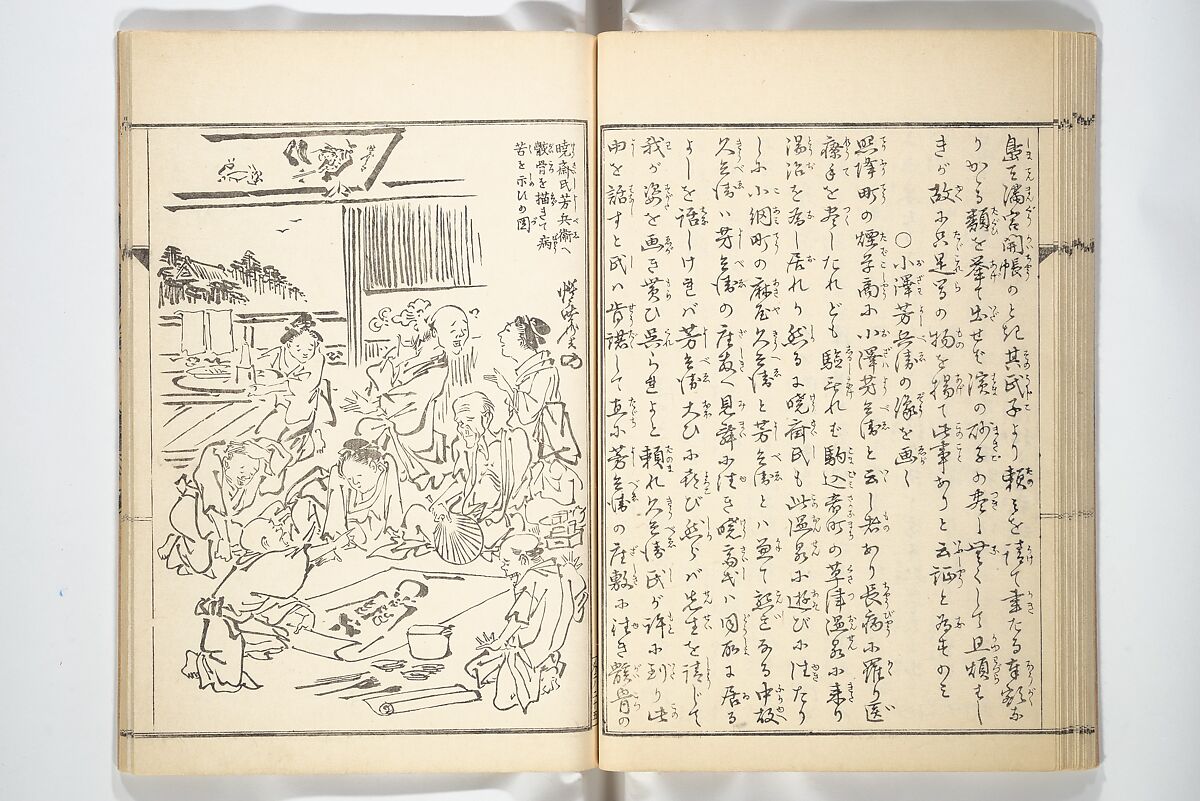 島天満宮開帳のとき其氏子より頼ミを請て画たる奉額な
りかゝる類を並て出せば濱の砂子の尽し無くして且煩はし
きが故に只是等の物を揚て此事ありと云証と為ものミ
○小澤芳兵衛の像を画く
照降町の煙草商に小澤芳兵衛と云し者あり長病に罹り医
療手を尽したれども驗なければ駒込町の草津温泉に来り
湯治を為し居れり然るに暁齋氏も此温泉に遊びに往たり
しに小網町の麻屋久兵衛と芳兵衛とハ兼て懇意なる中故
久兵衛ハ芳兵衛の座敷へ見舞に往き暁斎氏ハ同所に居る
よしを話しければ芳兵衛大ひに喜び然らバ先生を請じて
我が姿を画き貰ひ呉られよと頼れ久兵衛氏が許に到り此
由を話すと氏ハ肯諾して直に芳兵衛の座敷に往き骸骨の
暁斎氏芳兵衛へ
骸骨を描きて病
苦を示ひの図